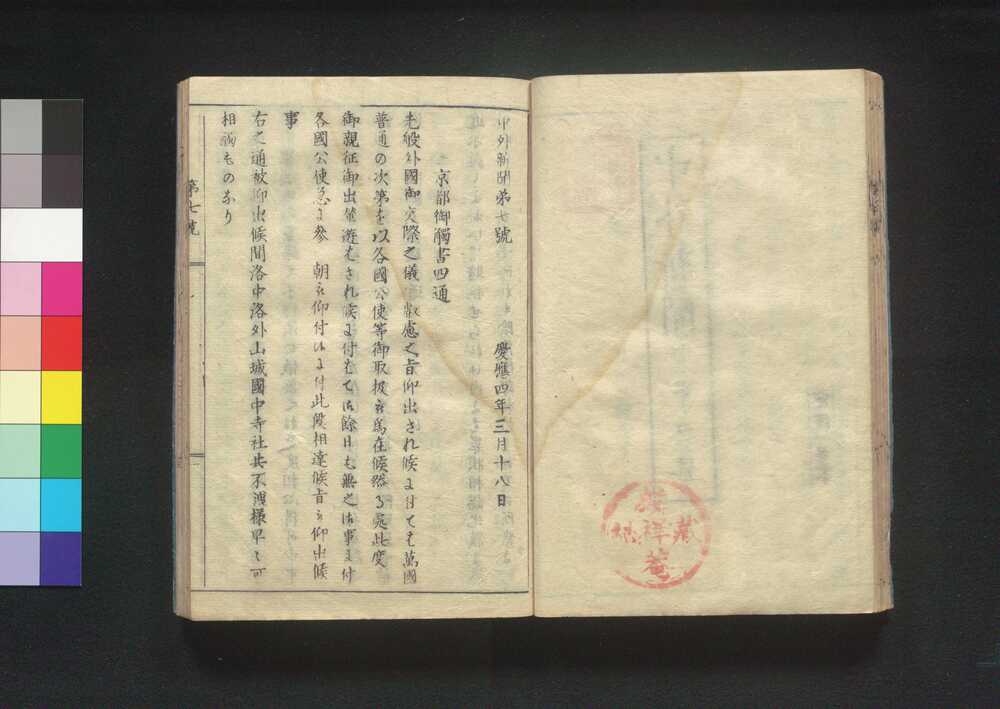 中外新聞第七號　慶應四年三月十八日
京都御觸書四通
先般外國御交際之儀叡慮之旨仰出され候に付ても萬國
普通の次第を以各國公使等御取扱被爲在候然る處此度
御親征御出輦遊され候に付ては餘日も無之御事に付
各國公使急に参　朝被仰付候に付此段相達候旨被仰出候
事
右之通被仰出候間洛中洛外山城國中寺社共不洩様早々可
相觸ものなり
第七號
藏
祥
菴